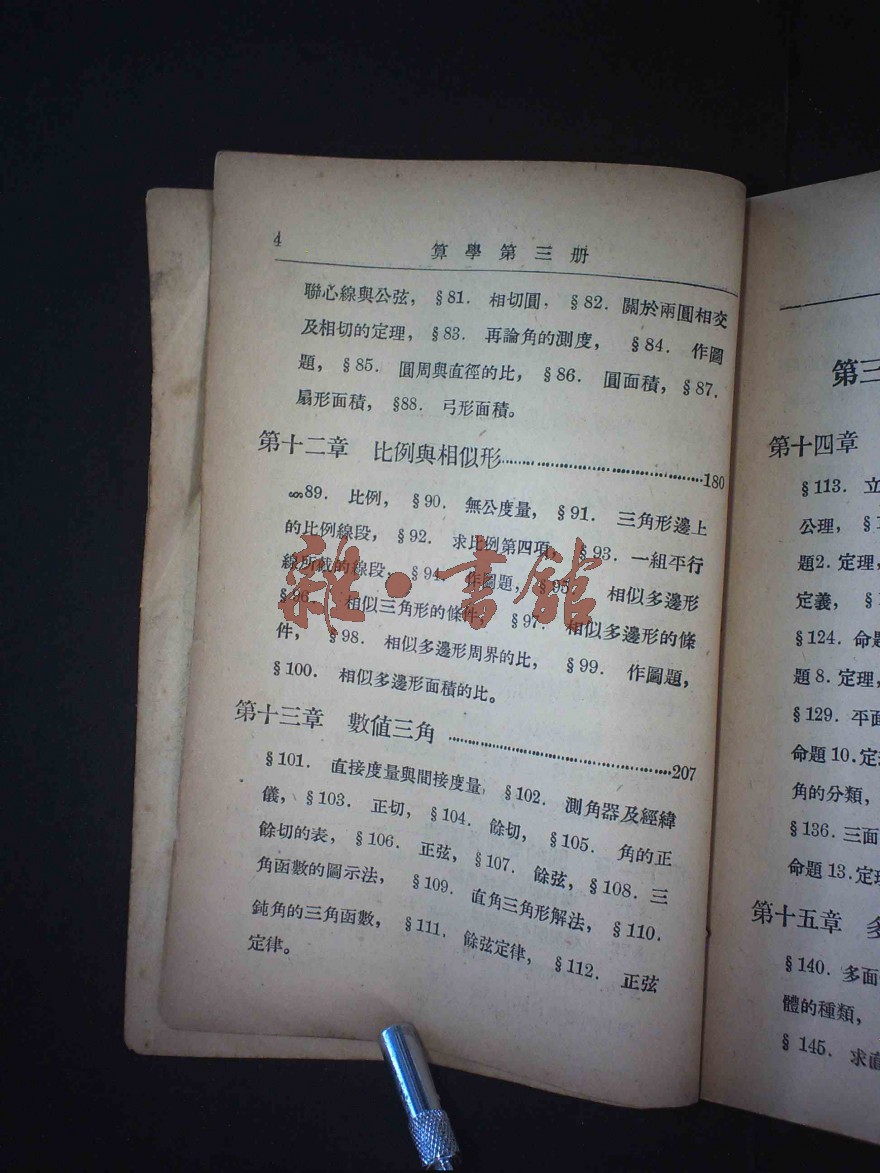 4
算學第三册
聯心線與公弦， §81. 相切圓， §82. 關於兩圓相交
及相切的定理， §83. 再論角的測度， §84. 作圖
題， §85. 圓周與直徑的比， §86. 圓面積， §87.
扇形面積， §88. 弓形面積。
第十二章 比例與相似形……180
§89. 比例， §90. 無公度量， §91. 三角形邊上
的比例線段， §92. 求比例第四項， §93. 一組平行
線所截的線段， §94. 作圖題， §95. 相似多邊形
§96. 相似三角形的條件， §97. 相似多邊形的條
件， §98. 相似多邊形周界的比， §99. 作圖題，
§100. 相似多邊形面積的比。
第十三章 數值三角……207
§101. 直接度量與間接度量， §102. 測角器及經緯
儀， §103. 正切， §104. 餘切， §105. 角的正
餘切的表， §106. 正弦， §107. 餘弦， §108. 三
角函數的圖示法， §109. 直角三角形解法， §110.
鈍角的三角函數， §111. 餘弦定律， §112. 正弦
定律。
雜·書館
第三
第十四章
§113. 立
公理， §
題2. 定理，
定義， §
§124. 命題
題8. 定理，
§129. 平面
命題10. 定
角的分類，
§136. 三面
命題13. 定理
第十五章 多
§140. 多面
體的種類，
§145. 求直